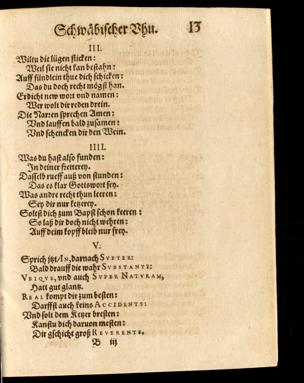 Schwäbischer Vhu. 13
III.
Wiltu die lügen sticken:
Weil sie nicht kan bestahn:
Auff fündlein thue dich schicken:
Das du doch recht mögst han.
Erdicht new wort vnd namen:
Wer wolt dir reden drein.
Die Narren sprechen Amen:
Vnd lauffen bald zusamen:
Vnd schencken dir den Wein.
IIII.
Was du hast also funden:
In deiner fretterey.
Dasselb rueff auß von stunden:
Das es klar Gottswort sey.
Was andre recht thun leeren:
Sey dir nur ketzerey.
Soltest dich zum Bapst schon keeren:
So laß dir doch nicht wehren:
Auff deim kopff bleib nur frey.
V.
Sprich jtzt/IN, darnach SVBTER:
Bald drauff die wahr SVBSTANTZ:
VBIQVE, vnd auch SVPER NATVRAM,
Hatt gut glantz.
REAL kompt dir zum besten:
Darffst auch keins ACCIDENTS:
Vnd solt dem Ketzer bresten:
Kanstu dich daruon mesten:
Dir gschicht groß REVERENTZ.
B iij